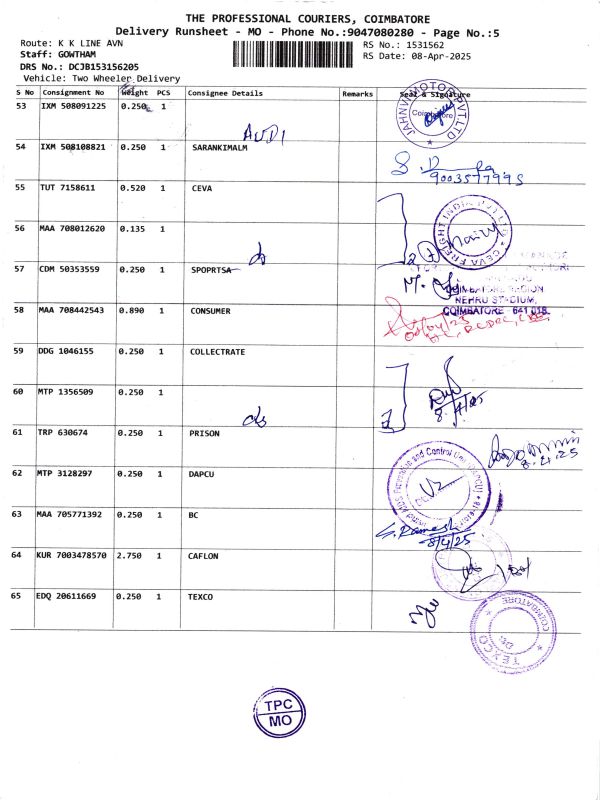 THE PROFESSIONAL COURIERS, COIMBATORE
Delivery Runsheet - MO - Phone No.:9047080280 - Page No.:5
Route: K K LINE AVN
RS No.: 1531562
Staff: GOWTHAM
RS Date: 08-Apr-2025
DRS No.: DCJB153156205
Vehicle: Two Wheeler Delivery
S No Consignment No Weight PCS Consignee Details Remarks Seal & Signature
53 IXM 508091225 0.250 1
AUDI
JAHNVI MOTOR PVT LTD
Coimbatore
54 IXM 508108821 0.250 1 SARANKIMALM
9003577995
55 TUT 7158611 0.520 1 CEVA
CEVA FREIGHT INDIA PVT LTD
56 MAA 708012620 0.135 1
57 CDM 50353559 0.250 1 SPOPRTSA
COIMBATORE REGION
NEHRU STADIUM,
COIMBATORE - 641 018.
58 MAA 708442543 0.890 1 CONSUMER
08/04/25
59 DDG 1046155 0.250 1 COLLECTRATE
60 MTP 1356509 0.250 1
8/4/25
61 TRP 630674 0.250 1 PRISON
8.4.25
62 MTP 3128297 0.250 1 DAPCU
AIDS Prevention and Control Unit (DAPCU)
63 MAA 705771392 0.250 1 BC
S. Ramesh
8/4/25
64 KUR 7003478570 2.750 1 CAFLON
65 EDQ 20611669 0.250 1 TEXCO
COIMBATORE
TEXCO
TPC
MO